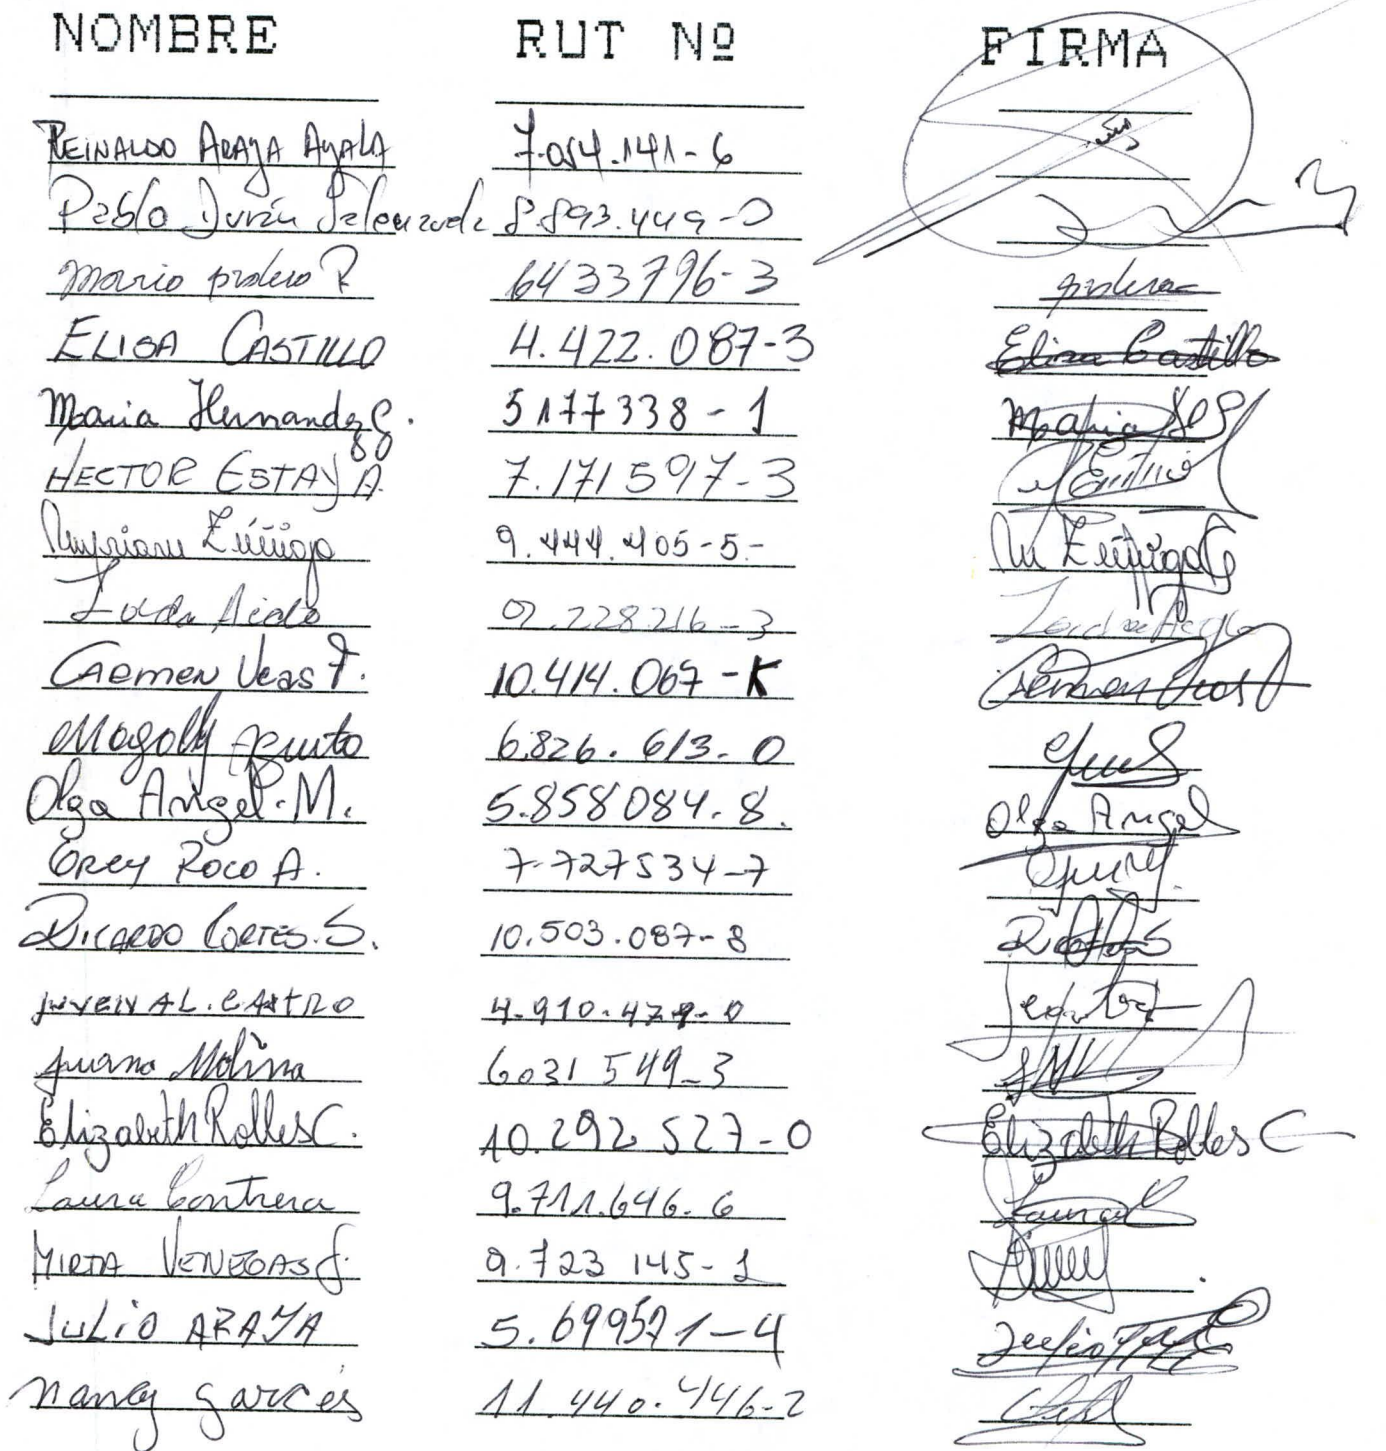 NOMBRE RUT Nº FIRMA
REINALDO ARAYA AYALA 7.054.141-6
Pablo Durán Valenzuela 8.893.449-0
Mario P. 6433796-3
ELISA CASTILLO 4.422.087-3 Elisa Castillo
Maria Hernandez G. 5177338-1 Maria H G
HECTOR ESTAY A. 7.171597-3
Myriam Zúñiga 9.444.405-5- M Zúñiga G
.228216-3
CARMEN Veas P. 10.414.067-K Carmen Veas P
Magaly 6.826.613-0
Olga Angel. M. 5.858084.8. Olga Angel
Grey ROCO A. 7.727534-7
RICARDO CORTES.S. 10.503.087-8
JUVENAL.CASTRO 4.910.479-0
Juana Molina 6031549-3 JM
Elizabeth Rolles C. 10.292.527-0 Elizabeth Rolles C
Laura Contrera 9.711.646.6 Laura C
MIRTA VENEGAS G. 9.723 145-1
JULIO ARAYA 5.699571-4 Julio
Nancy garcés 11.440.446-2